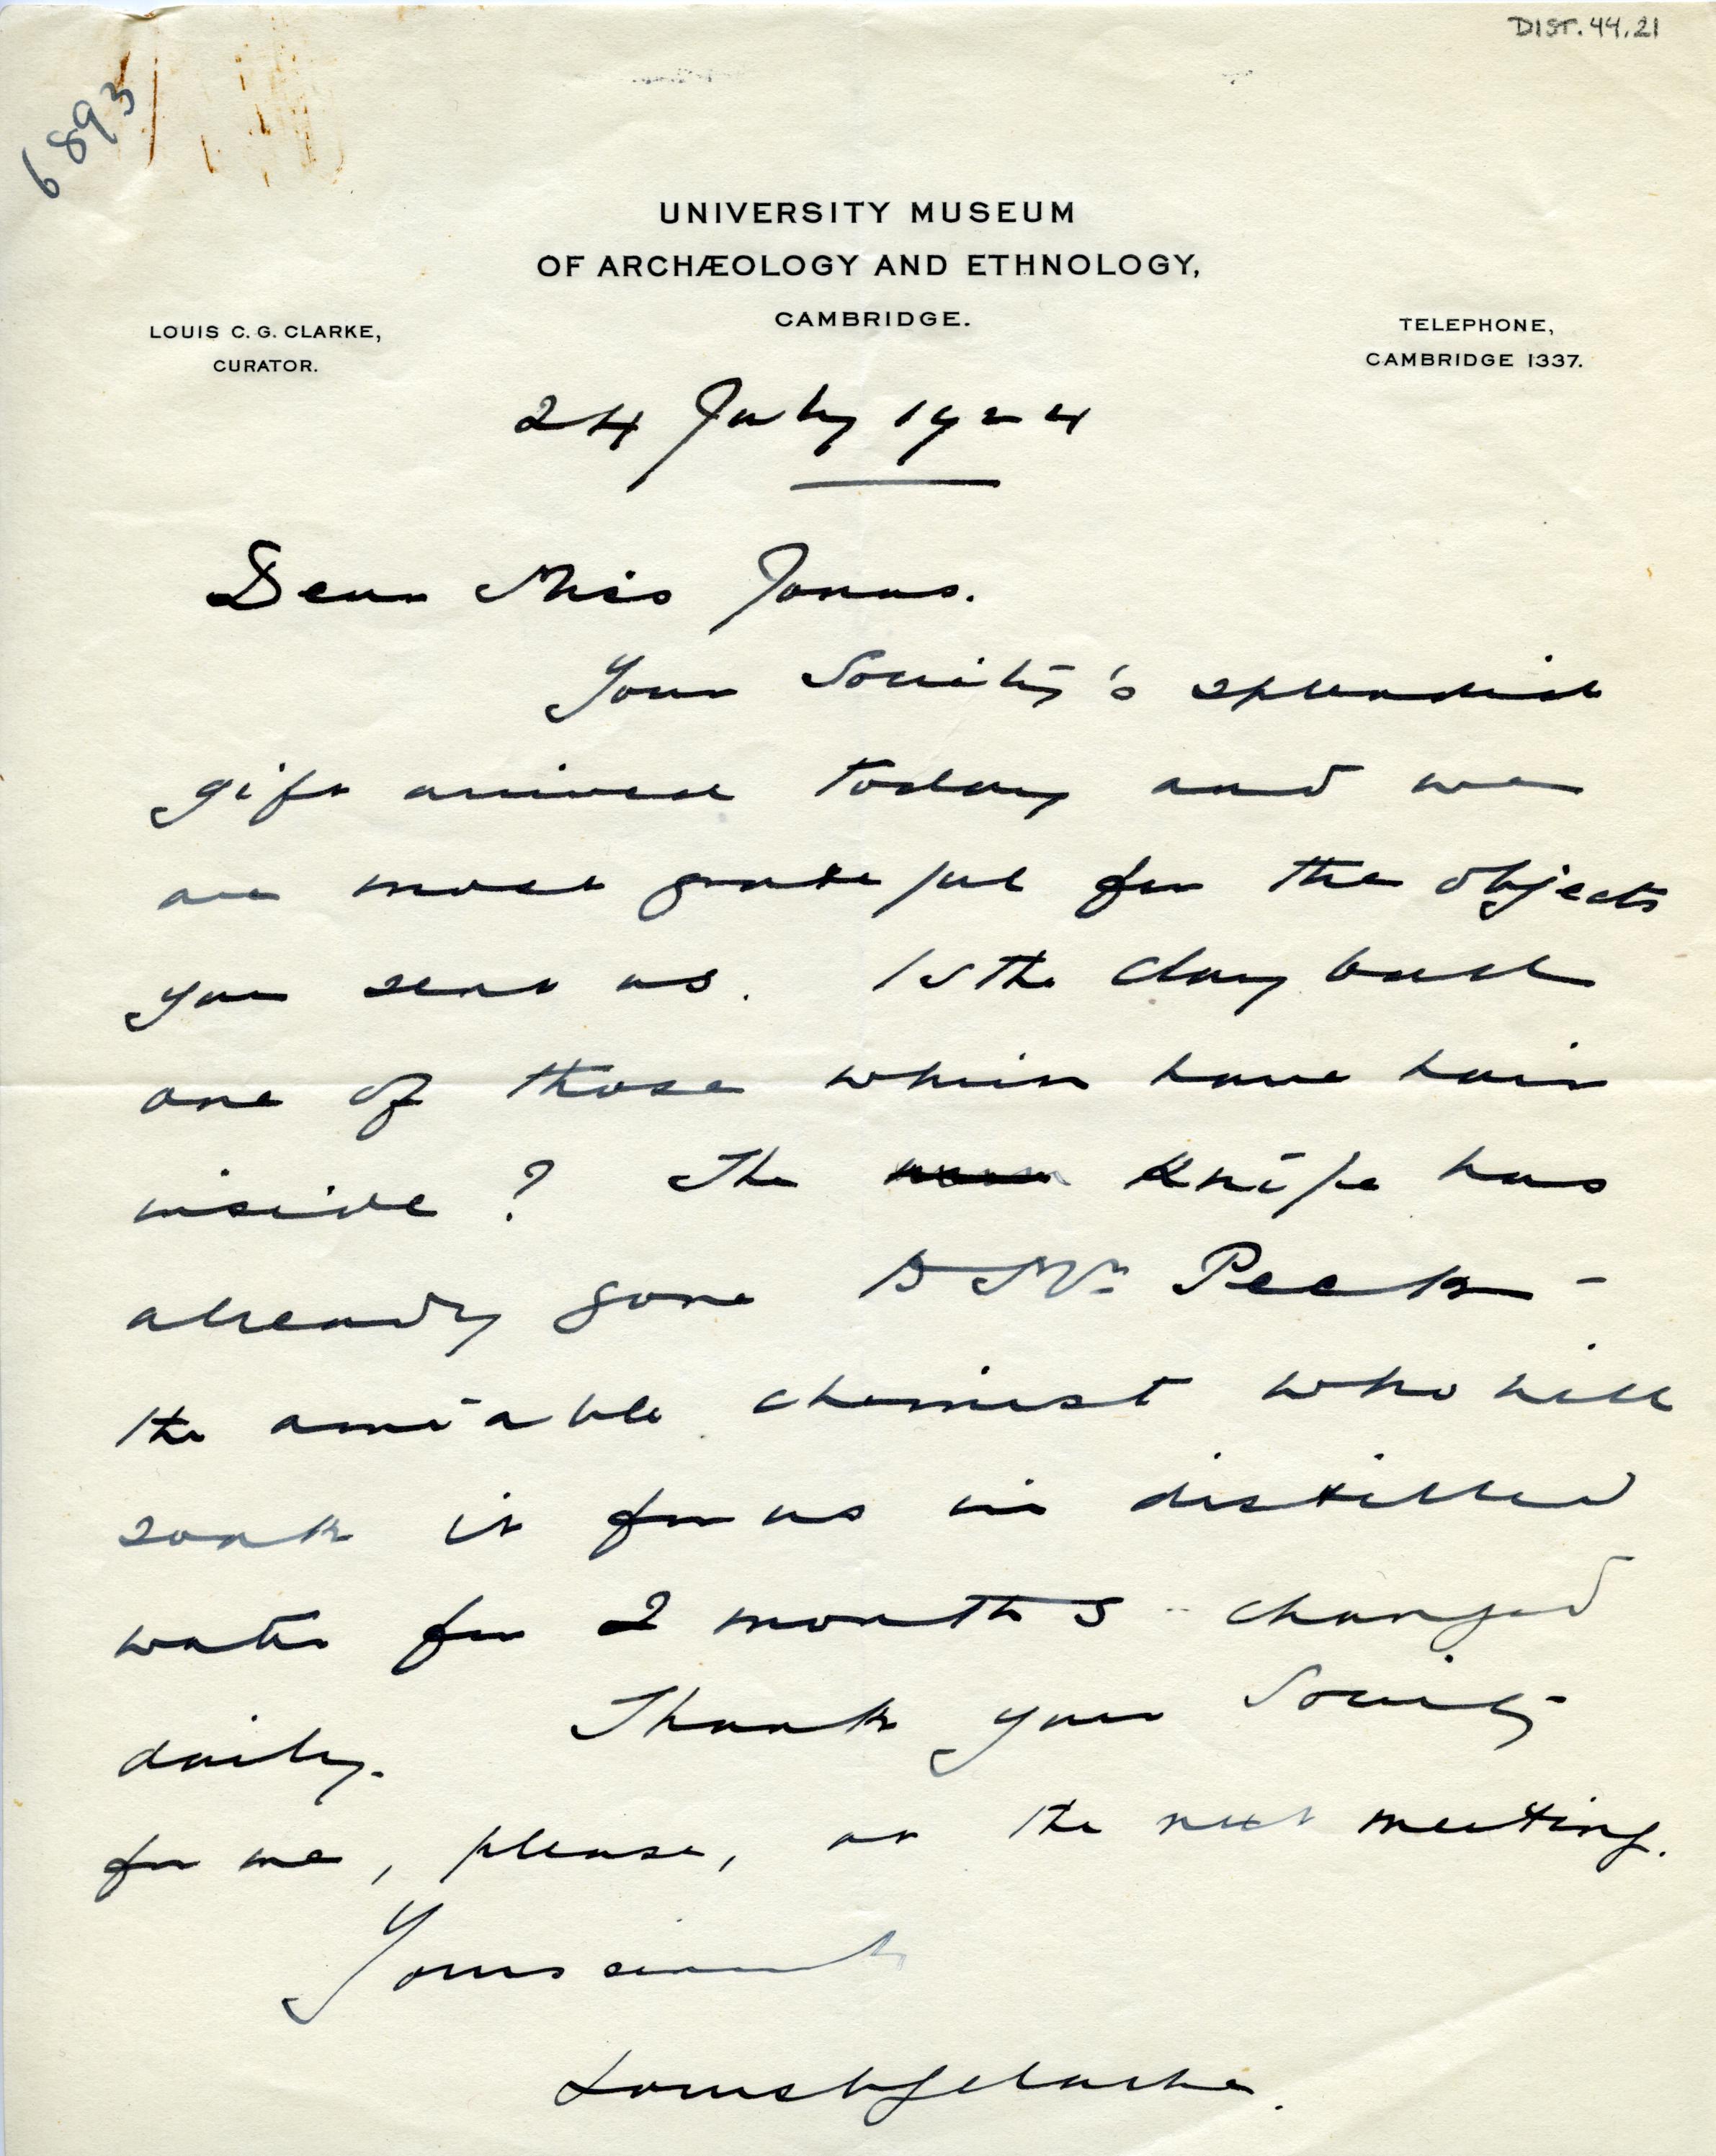 DIST. 44.21
6893
UNIVERSITY MUSEUM
OF ARCHÆOLOGY AND ETHNOLOGY,
CAMBRIDGE.
LOUIS C. G. CLARKE,
CURATOR.
TELEPHONE,
CAMBRIDGE 1337.
24 July 1924
Dear Miss Jonas.
Your Society's splendid
gift arrived today and we
are most grateful for the objects
you sent us. Is the clay ball
one of those which have hair
inside? The Knife has
already gone to Mr Peek -
the amiable chemist who will
soak it for us in distilled
water for 2 months - changed
daily. Thank your Society
for me, please, at the next meeting.
Yours sincerely
Louis C G Clarke.